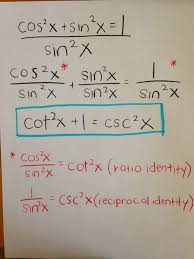 cos²x + sin²x = 1
sin²x
cos²x* + sin²x = 1*
sin²x sin²x sin²x
cot²x + 1 = csc²x
* cos²x = cot²x (ratio identity)
sin²x
1 = csc²x (reciprocal identity)
sin²x